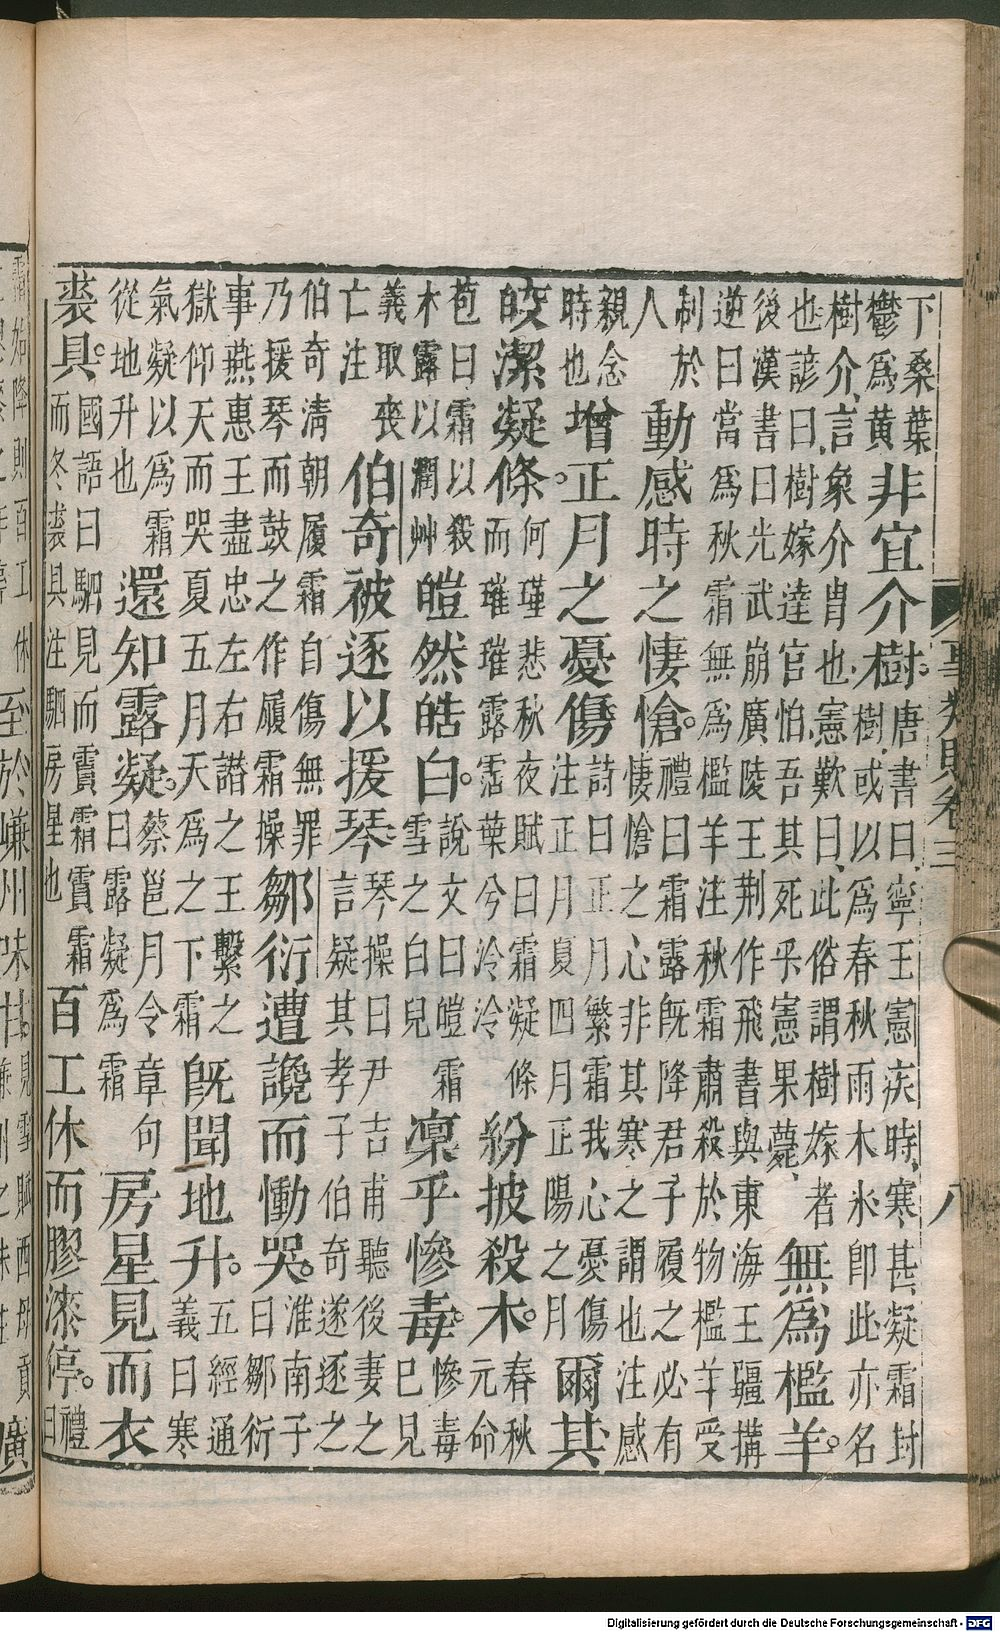 事類賦卷三 八
下桑葉鬱爲黃非宜介樹。唐書曰、寧王憲疾時、寒甚凝霜封樹、或以爲春秋雨木氷卽此亦名
樹介、言象介冑也、憲歎曰、此俗謂樹嫁者也諺曰、樹嫁達官怕、吾其死乎憲果薨、無爲檻羊。
後漢書曰光武崩廣陵王荊作飛書與東海王疆搆逆曰當爲秋霜無爲檻羊注秋霜肅殺於物檻羊受
制於人動感時之悽愴。禮曰霜露旣降君子履之必有悽愴之心非其寒之謂也注感
親念時也增正月之憂傷詩曰正月繁霜我心憂傷注正月夏四月正陽之月爾其
皎潔凝條。何瑾悲秋夜賦曰霜凝條而璀璀露霑葉兮泠泠紛披殺木。春秋元命
苞曰霜以殺木露以潤艸皚然皓白。說文曰皚霜雪之白兒凛乎慘毒。慘毒已見
義取喪亡注伯奇被逐以援琴琴操曰尹吉甫聽後妻之言疑其孝子伯奇遂逐之
伯奇清朝履霜自傷無罪乃援琴而鼓之作履霜操鄒衍遭讒而慟哭。淮南子曰鄒衍
事燕惠王盡忠左右譖之王繫之獄仰天而哭夏五月天爲之下霜旣聞地升。五經通義曰寒
氣凝以爲霜從地升也還知露凝。蔡邕月令章句曰露凝爲霜房星見而衣
裘具。國語曰駟見而霣霜霣霜而冬裘具注駟房星也百工休而膠漆停。禮曰
霜始降則百工休
至於嵰州味甘。見雪賦西母貢
廣
Digitalisierung gefördert durch die Deutsche Forschungsgemeinschaft - DFG